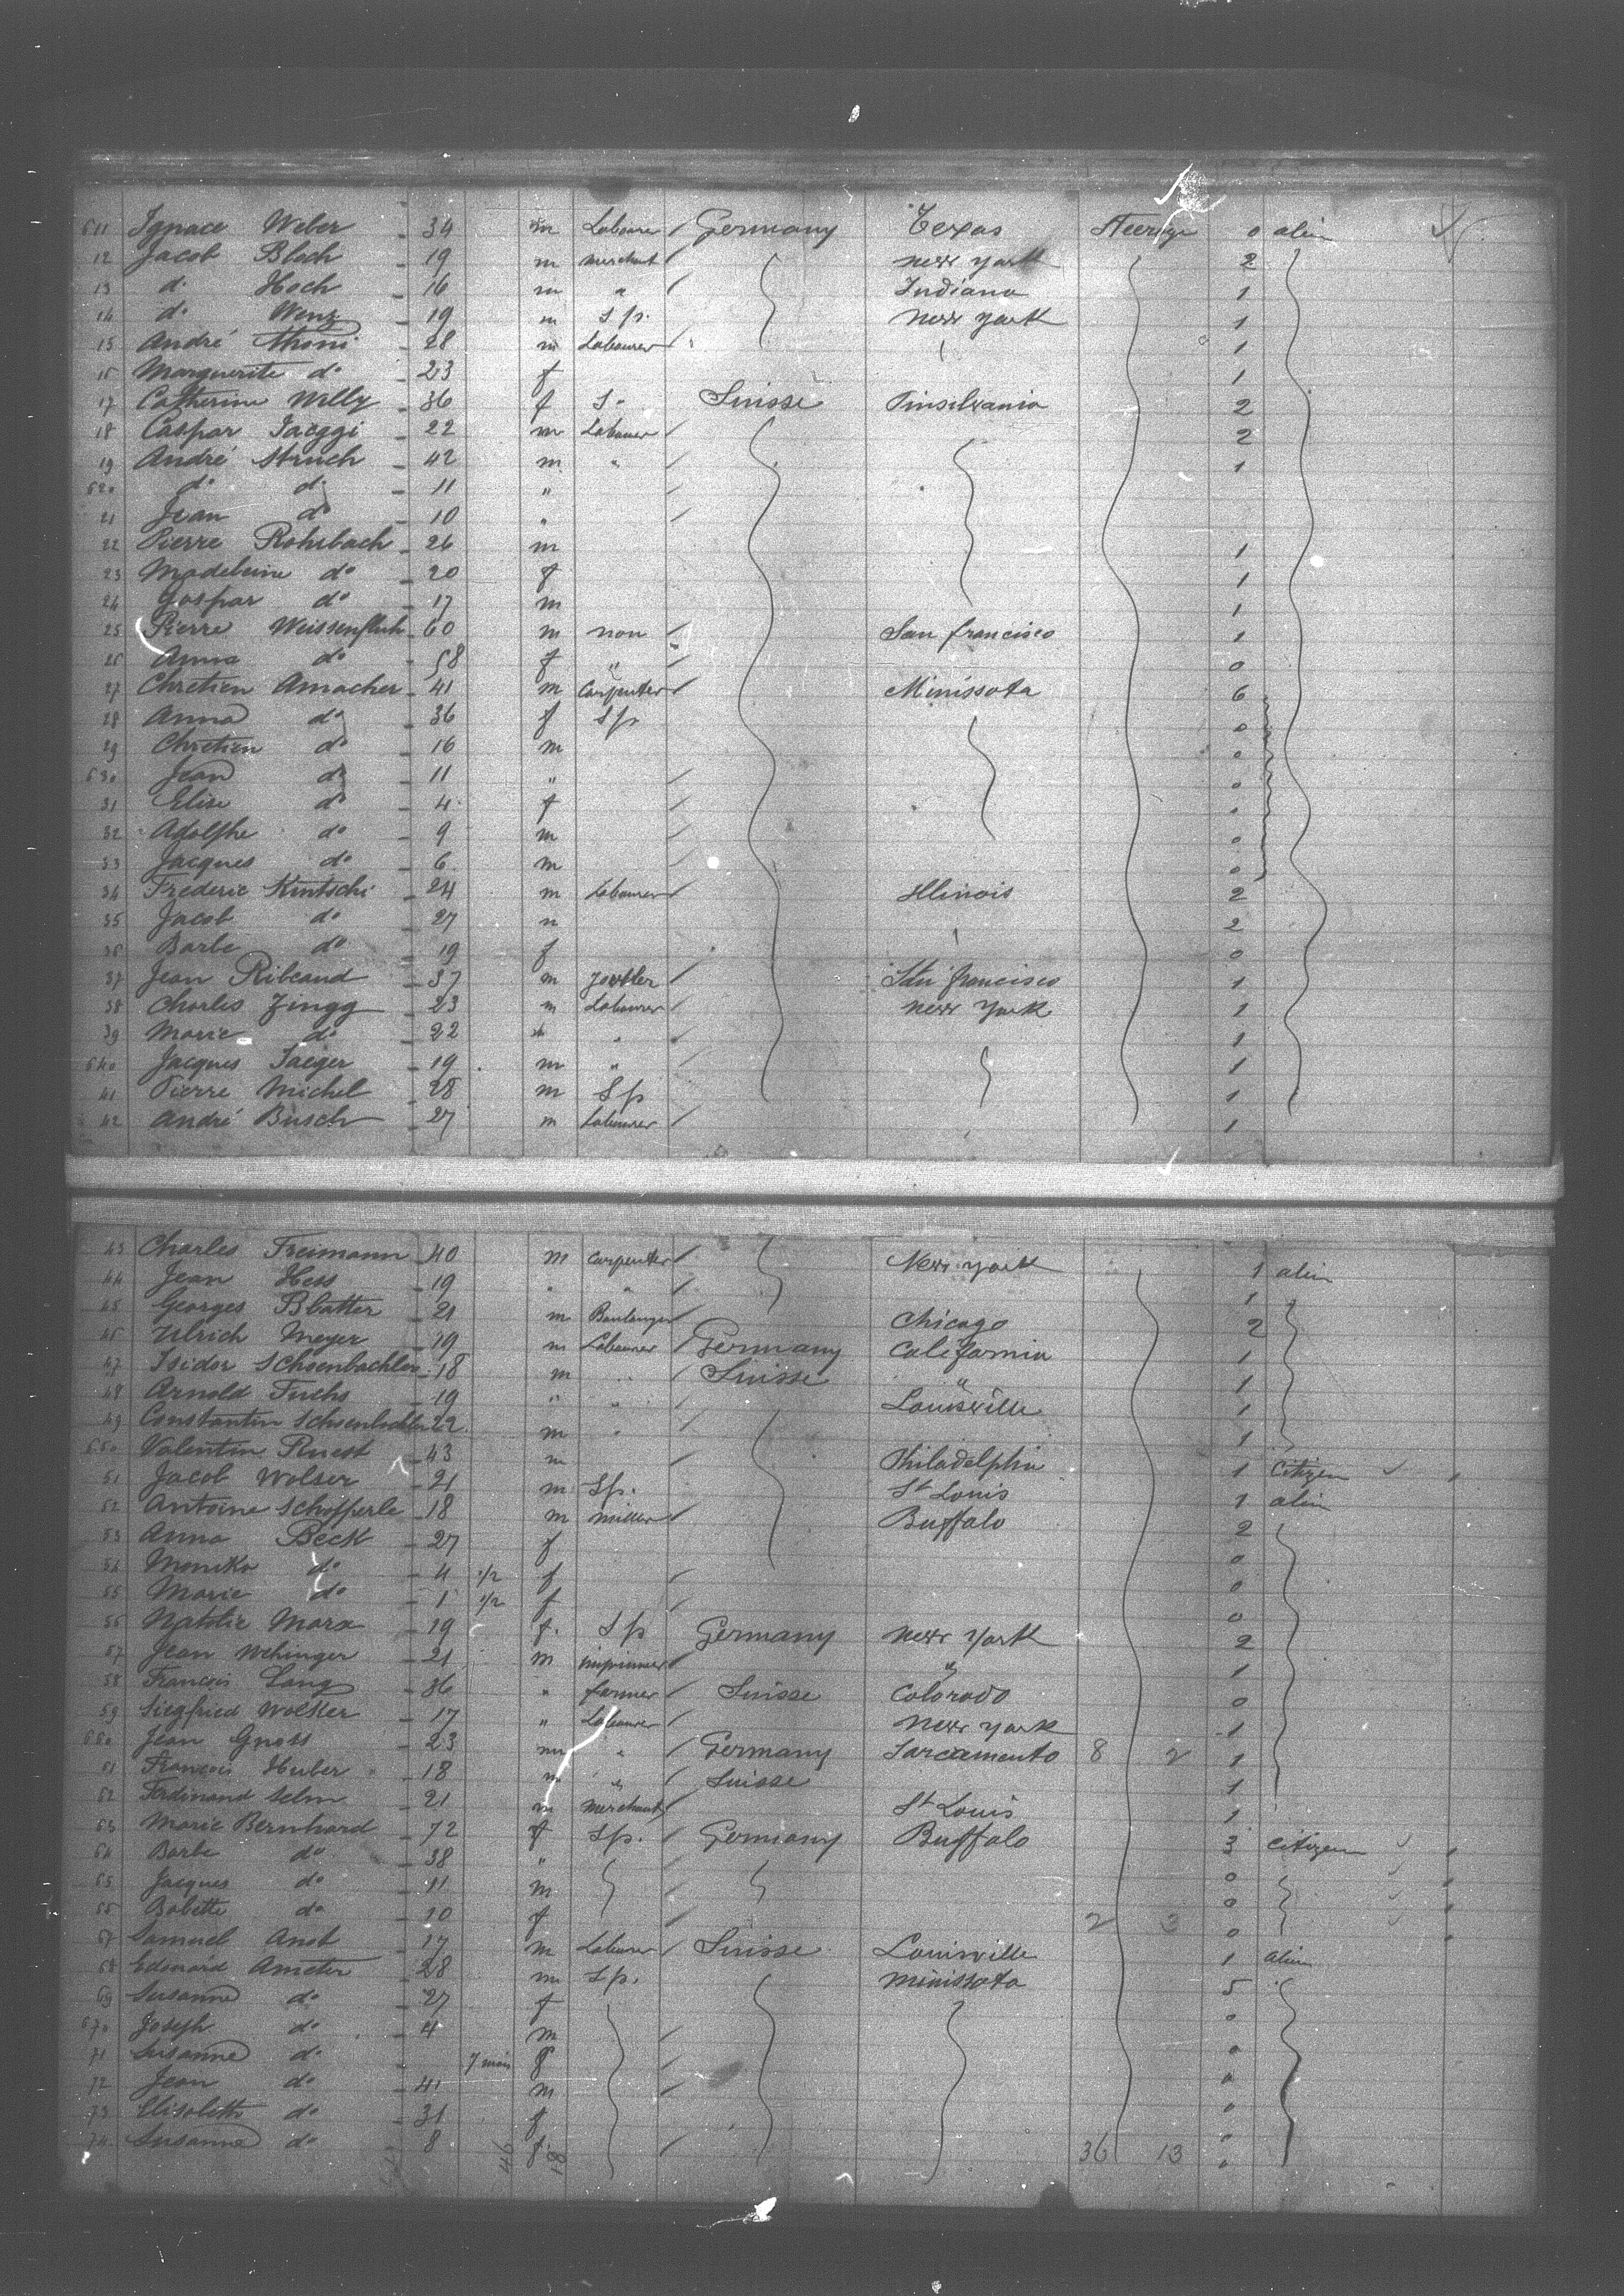 611 Ignace Weber - 34 m Labourer / Germany Texas Steerage 0 alien
12 Jacob Bloch - 19 m merchant / new york 2
13 do Hoch - 16 m " / Indiana 1
14 do Wenz - 19 m Sp. new york 1
15 André Thoni - 28 m Labourer / 1
16 Marguerite do - 23 f 1
17 Catherine Willy - 36 f S Suisse Pinsilvania 2
18 Caspar Jaeggi - 22 m Labourer / 2
19 André Struch - 42 m " / 1
620 do do - 11 " /
21 Jean do - 10 " /
22 Pierre Rohrbach - 26 m 1
23 Madeleine do - 20 f 1
24 Gaspar do - 17 m 1
25 Pierre Weissenfluh - 60 m non / San francisco 1
26 Anna do - 58 f " / 0
27 Chretien Amacher - 41 m Carpenter / Minissota 6
28 Anna do - 36 f Sp 0
29 Chretien do - 16 m 0
630 Jean do - 11 " / 0
31 Elise do - 4 f / 0
32 Adolphe do - 9 m / 0
33 Jacques do - 6 m / 0
34 Frederic Kintschi - 24 m Labourer / Illinois 2
35 Jacob do - 27 m 2
36 Barbe do - 19 f 0
37 Jean Ribeaud - 37 m / San francisco 1
38 Charles Zingg - 23 m Labourer / new york 1
39 Marie do - 22 " / 1
640 Jacques Jaeger - 19 m " / 1
41 Pierre Michel - 28 m Sp / 1
42 André Busch - 27 m Labourer / 1
43 Charles Freimann - 40 m Carpenter / New york 1 alien
44 Jean Hess - 19 " " / 1
45 Georges Blatter - 21 m Boulanger Chicago 2
46 Ulrich Meyer - 19 m Labourer Germany California 1
47 Isidor Schoenbachler - 18 m " Suisse " 1
48 Arnold Fuchs - 19 " " / Louisville 1
49 Constantin Schoenbachler 22 m " / 1
650 Valentin Ruest - 43 m / Philadelphia 1 Citizen
51 Jacob Wolser - 21 m Sp. St Louis 1 alien
52 Antoine Schopperle - 18 m miller / Buffalo 2
53 Anna Beck - 27 f 0
54 Monika do - 4 1/2 f / 0
55 Marie do - 1 1/2 f / 0
56 Natalie Marx - 19 f. Sp Germany new York 2
57 Jean Wehinger - 21 m imprimeur / " 1
58 Francois Lang - 36 " farmer / Suisse Colorado 0
59 Siegfried Wolker - 17 " Labourer new york 1
660 Jean Gnoss - 23 m " / Germany Sarcamento 8 2 1
61 Francois Huber - 18 m " / Suisse 1
62 Ferdinand Selm - 21 m merchant / St Louis 1
63 Marie Bernhard - 72 f Sp. / Germany Buffalo 3 Citizen
64 Barbe do - 38 " 0
65 Jacques do - 11 m / 0
66 Babette do - 10 f / 2 3 0
67 Samuel Anst - 17 m Labourer / Suisse Louisville 1 alien
68 Edouard Ameter - 28 m Sp. minissota 5
69 Susanne do - 27 f 0
670 Joseph do - 4 m /
71 Susanne do 7 mois f / 0
72 Jean do - 41 m / 0
73 Elisabeth do - 31 f 0
74 Susanne do - 8 f. / 36 13 0
46 18